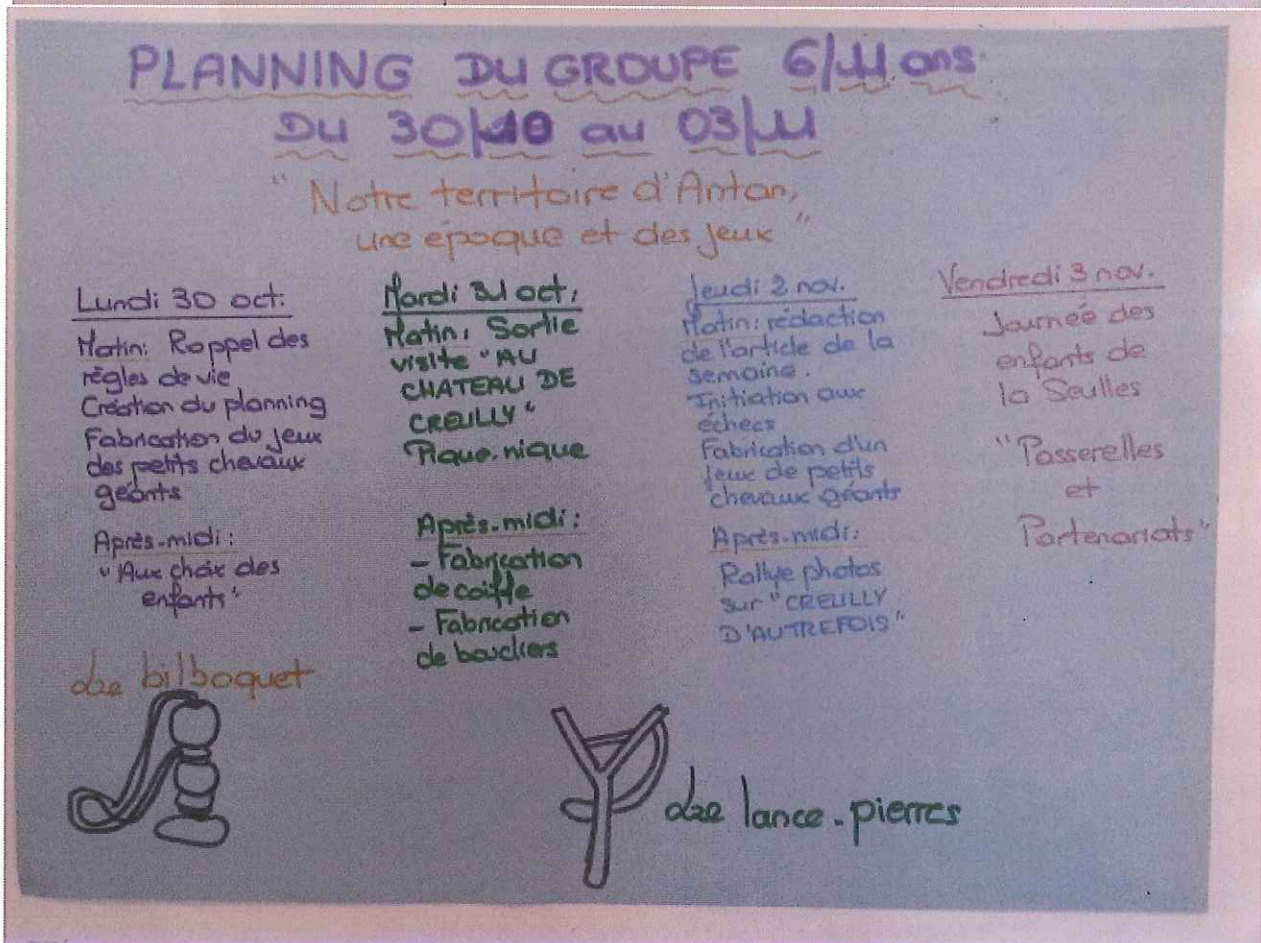 PLANNING DU GROUPE 6/11 ans
DU 30/10 au 03/11
"Notre territoire d'Antan,
une époque et des jeux"
Lundi 30 oct.
Matin: Rappel des
règles de vie
Création du planning
Fabrication du jeux
des petits chevaux
géants
Après-midi:
"Aux choix des
enfants"
Mardi 31 oct.
Matin: Sortie
visite "AU
CHATEAU DE
CREUILLY"
Pique-nique
Après-midi:
- Fabrication
de coiffe
- Fabrication
de boucliers
Jeudi 2 nov.
Matin: rédaction
de l'article de la
semaine.
Initiation aux
échecs
Fabrication d'un
jeux de petits
chevaux géants
Après-midi:
Rallye photos
sur "CREUILLY
D'AUTREFOIS"
Vendredi 3 nov.
Journée des
enfants de
la Seulles
"Passerelles
et
Partenariats"
Le bilboquet
Le lance-pierres